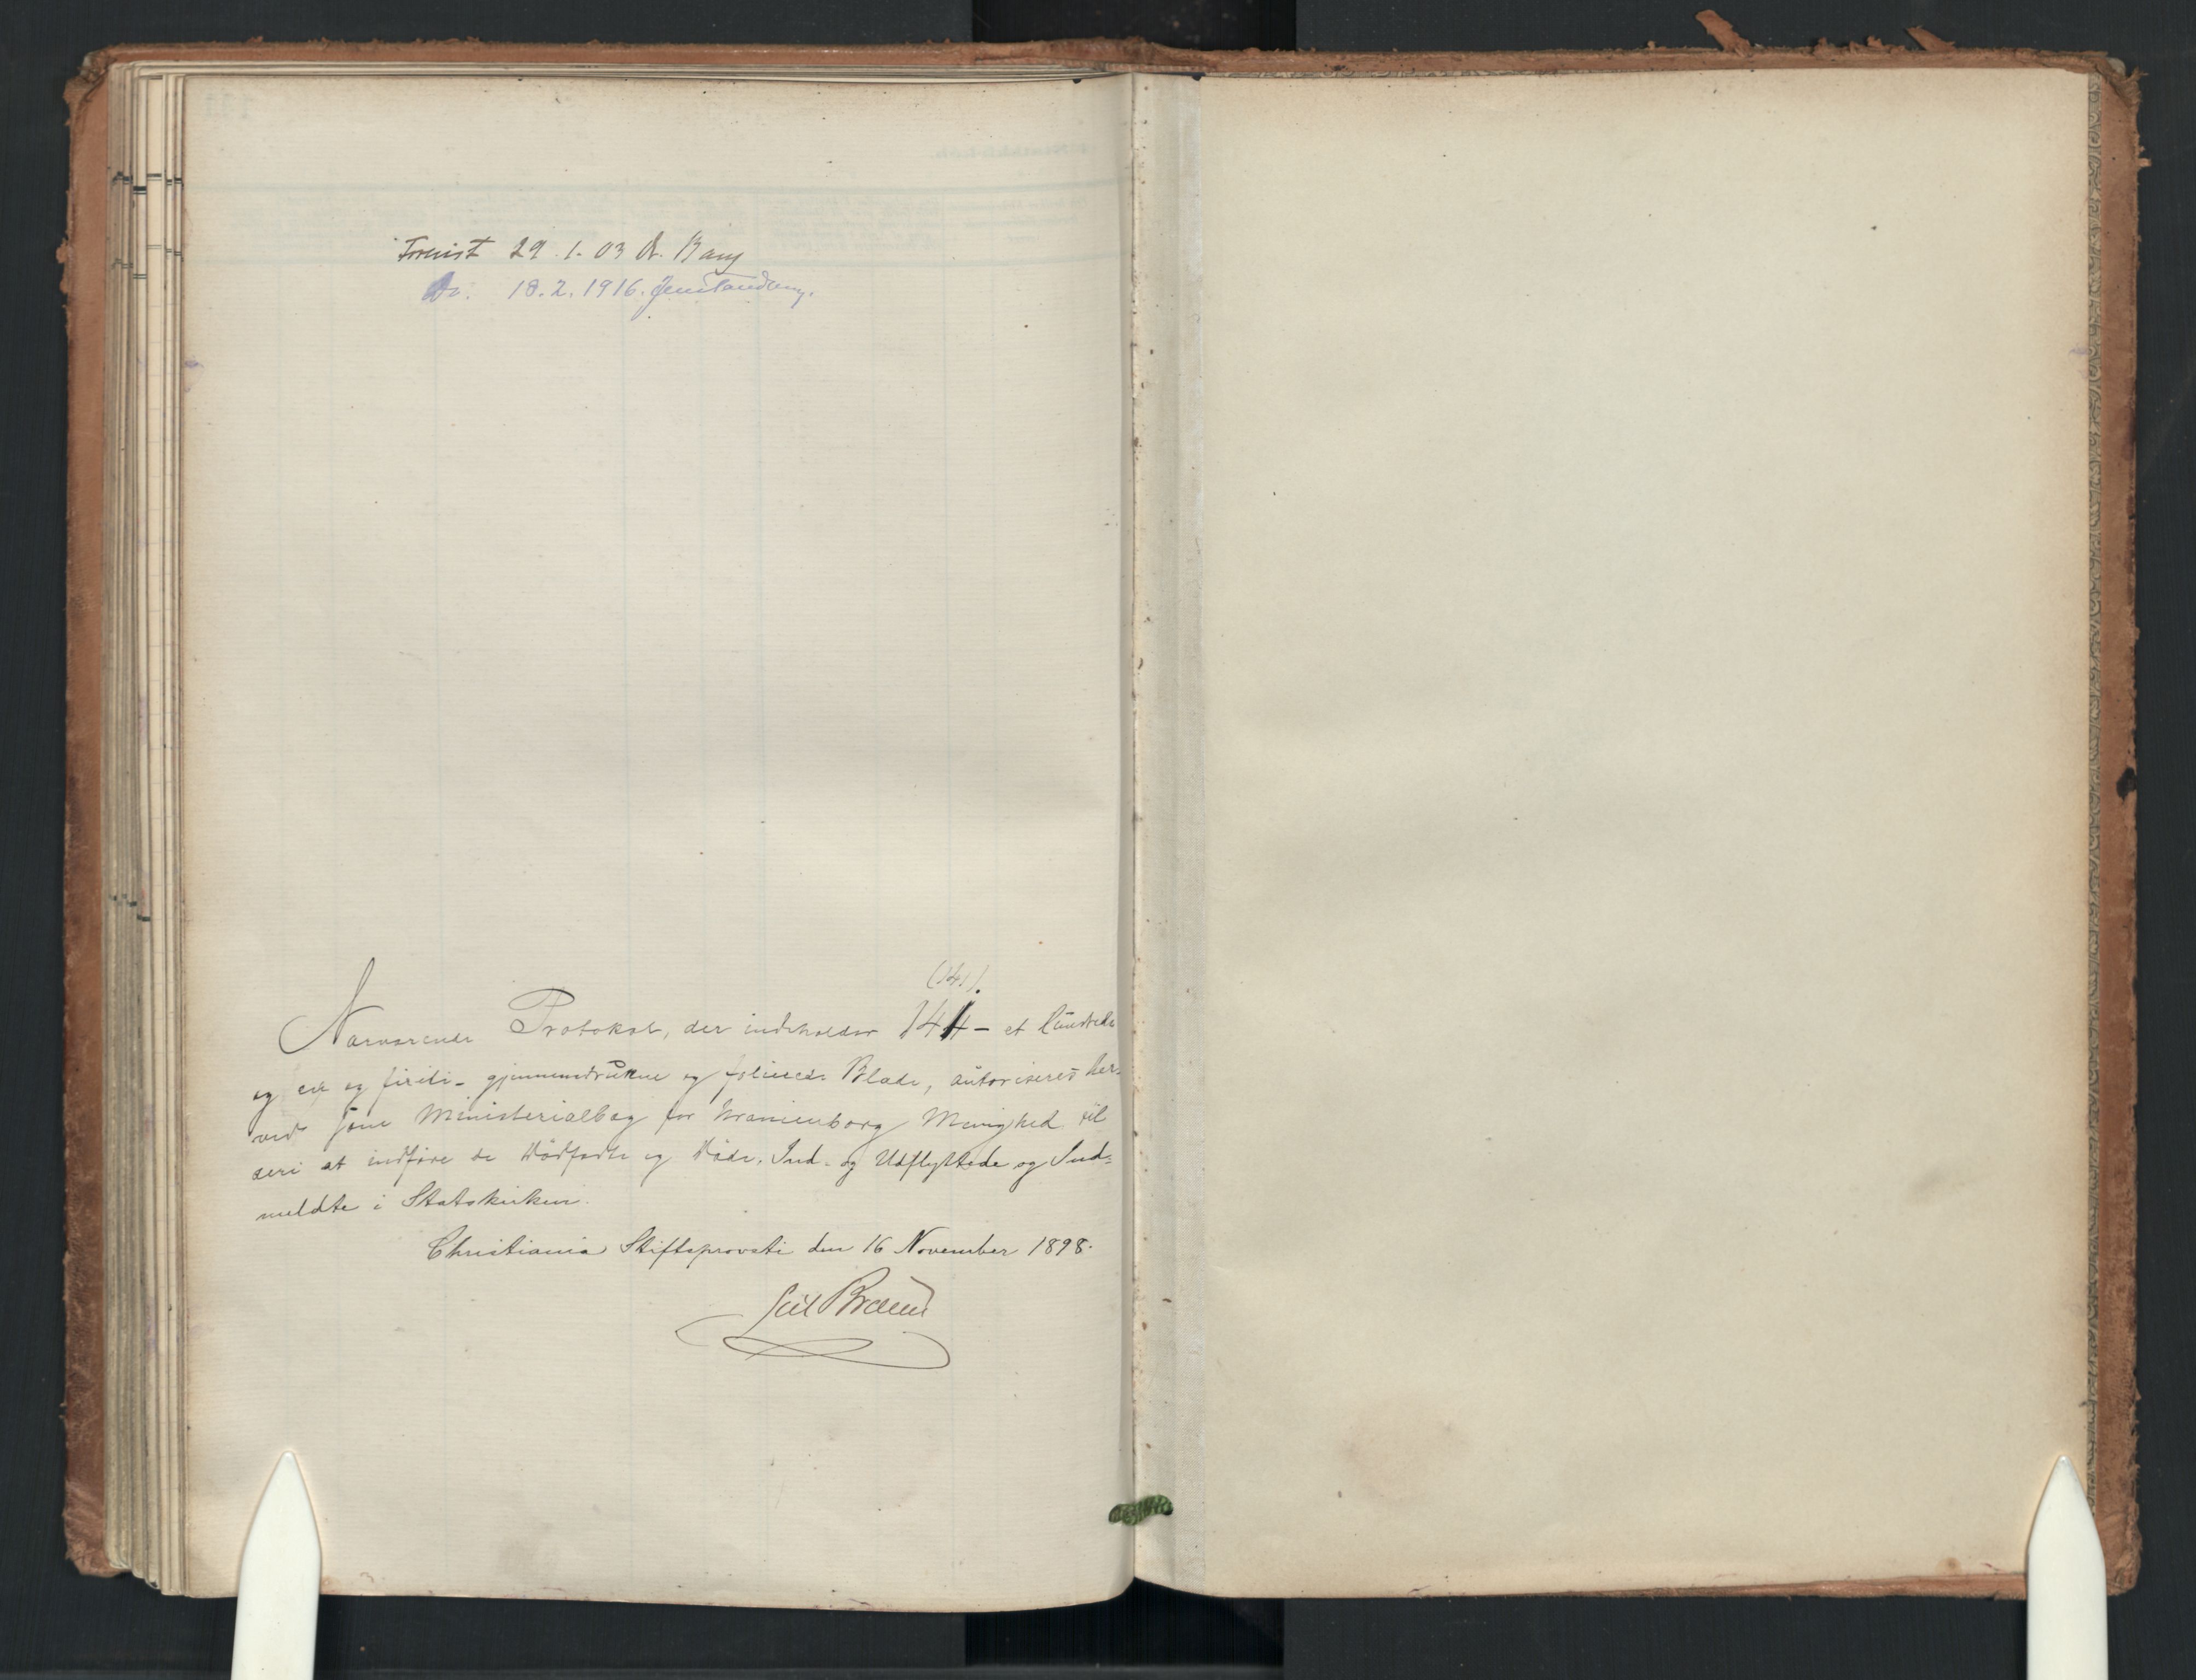 Forevist 29.1.03 A. Bang
Do. 18.2.1916. Jens Tandberg.
(141).
Nærværende Protokol, der indeholder 141 - et hundrede
og en og firiti - gjennemdrukne og folierede Blade, autoriseres her-
ved som Ministerialbog for Uranienborg Menighed til
deri at indføre de Dødfødte og Døde, Ind- og Udflyttede og Ind-
meldte i Statskirken.
Christiania Stiftsprovsti den 16 November 1898.
Jul Bruun